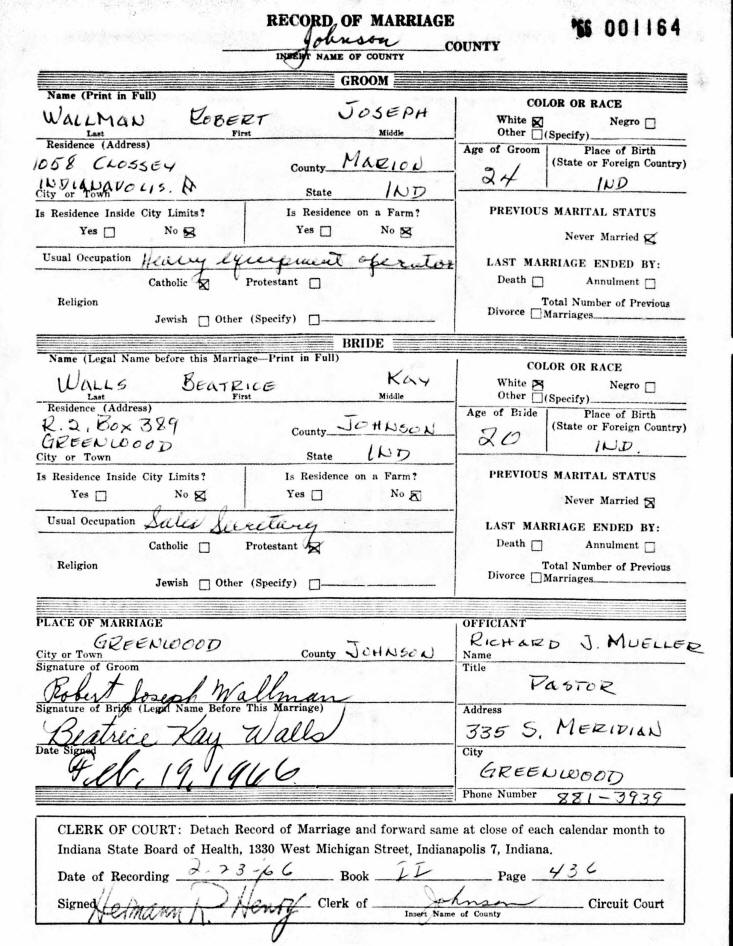 RECORD OF MARRIAGE
'66 001164
Johnson COUNTY
INSERT NAME OF COUNTY
GROOM
Name (Print in Full)
WALLMAN ROBERT JOSEPH
Last First Middle
COLOR OR RACE
White ☒ Negro ☐
Other ☐ (Specify)
Residence (Address)
1058 CLOSSEY
County MARION
INDIANAPOLIS.
City or Town
State IND
Age of Groom
24
Place of Birth
(State or Foreign Country)
IND
Is Residence Inside City Limits?
Yes ☐ No ☒
Is Residence on a Farm?
Yes ☐ No ☒
PREVIOUS MARITAL STATUS
Never Married ☒
Usual Occupation Heavy equipment operator
Religion
Catholic ☒ Protestant ☐
Jewish ☐ Other (Specify) ☐
LAST MARRIAGE ENDED BY:
Death ☐ Annulment ☐
Divorce ☐ Total Number of Previous
Marriages
BRIDE
Name (Legal Name before this Marriage—Print in Full)
WALLS BEATRICE KAY
Last First Middle
COLOR OR RACE
White ☒ Negro ☐
Other ☐ (Specify)
Residence (Address)
R.2, Box 389
County JOHNSON
GREENWOOD
City or Town
State IND
Age of Bride
20
Place of Birth
(State or Foreign Country)
IND.
Is Residence Inside City Limits?
Yes ☐ No ☒
Is Residence on a Farm?
Yes ☐ No ☒
PREVIOUS MARITAL STATUS
Never Married ☒
Usual Occupation Sales Secretary
Religion
Catholic ☐ Protestant ☒
Jewish ☐ Other (Specify) ☐
LAST MARRIAGE ENDED BY:
Death ☐ Annulment ☐
Divorce ☐ Total Number of Previous
Marriages
PLACE OF MARRIAGE
GREENWOOD
City or Town
County JOHNSON
Signature of Groom
Robert Joseph Wallman
Signature of Bride (Legal Name Before This Marriage)
Beatrice Kay Walls
Date Signed
Feb. 19, 1966
OFFICIANT
RICHARD J. MUELLER
Name
Title
PASTOR
Address
335 S. MERIDIAN
City
GREENWOOD
Phone Number 881-3939
CLERK OF COURT: Detach Record of Marriage and forward same at close of each calendar month to
Indiana State Board of Health, 1330 West Michigan Street, Indianapolis 7, Indiana.
Date of Recording 2-23-66 Book II Page 436
Signed Hermann R Henry Clerk of Johnson Circuit Court
Insert Name of County